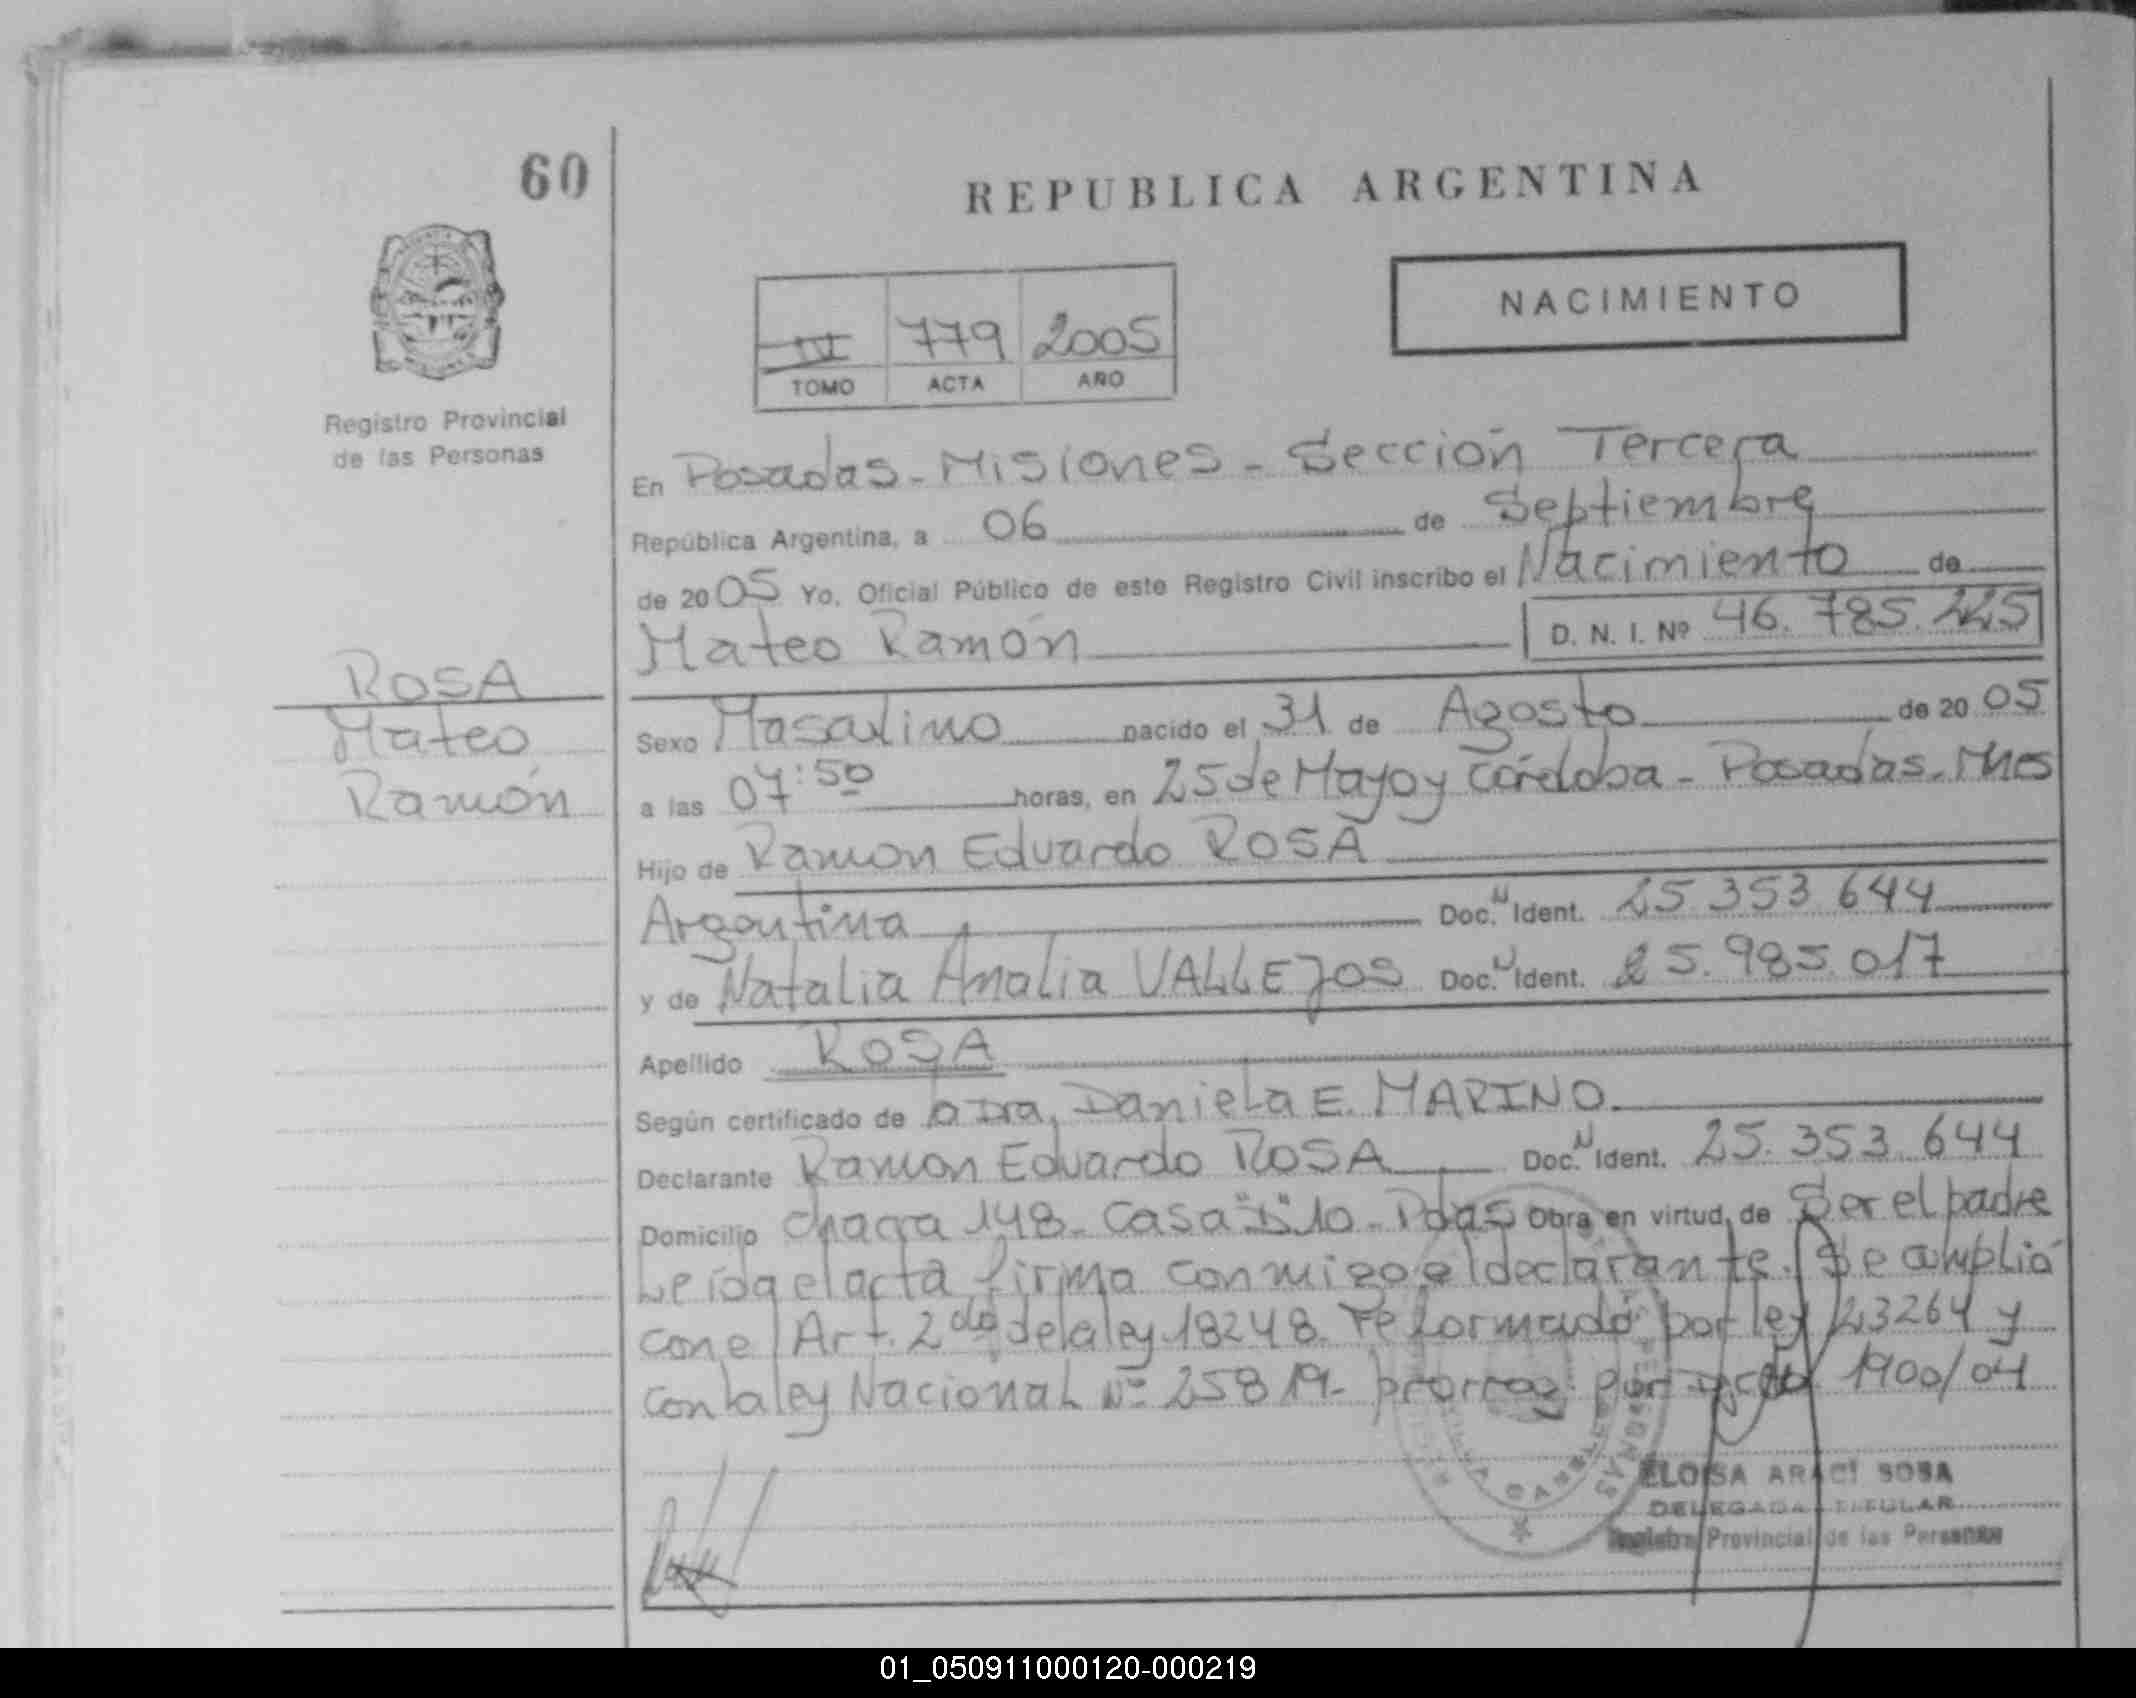 60
REPUBLICA ARGENTINA
NACIMIENTO
IV 779 2005
TOMO ACTA AÑO
Registro Provincial
de las Personas
En Posadas - Misiones - Sección Tercera
República Argentina, a 06 de Septiembre
de 2005 Yo, Oficial Público de este Registro Civil inscribo el Nacimiento de
Mateo Ramón D. N. I. Nº 46.785.225
ROSA
Mateo
Ramón
Sexo Masculino nacido el 31 de Agosto de 20 05
a las 07:50 horas, en 25 de Mayo y Córdoba - Posadas - Mnes
Hijo de Ramon Eduardo ROSA
Argentina Doc. N Ident. 25.353.644
y de Natalia Amalia VALLEJOS Doc. N Ident. 25.985.017
Apellido ROSA
Según certificado de la Dra. Daniela E. MARINO
Declarante Ramon Eduardo ROSA Doc. N Ident. 25.353.644
Domicilio Chacra 148 - Casa "D" 10 - Pdas Obra en virtud de Ser el padre
Leída el acta firma conmigo el declarante. Se cumplió
con el Art. 2do de la ley 18248. reformado por ley 23264 y
con la ley Nacional Nº 25819 - prorrog. por 1900/04
ELOISA ARACI SOSA
DELEGADA TITULAR
Registro Provincial de las Personas
01_050911000120-000219